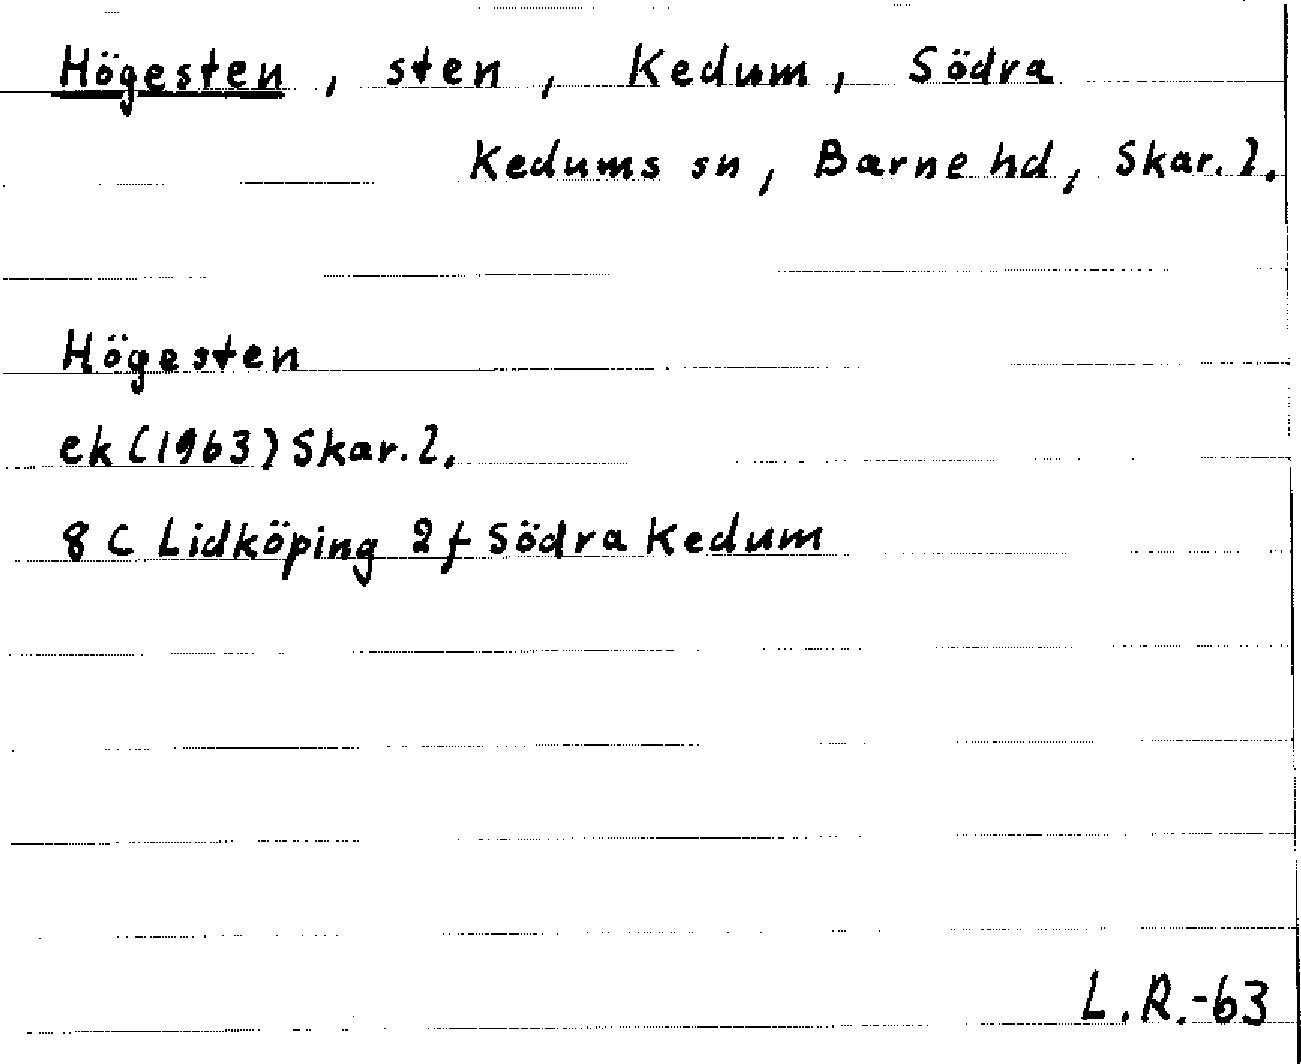 Högesten, sten, Kedum, Södra
Kedums sn, Barne hd, Skar. l.
Högesten
ek (1963) Skar. l.
8 C Lidköping 2 f Södra Kedum
L.R.-63